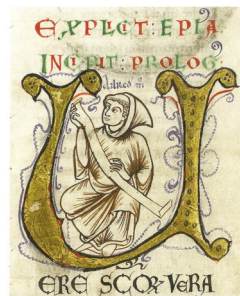 EXPLICIT: EPĪA
INCIPIT: PROLOG:
U
ERE SCŌꝜ VERA